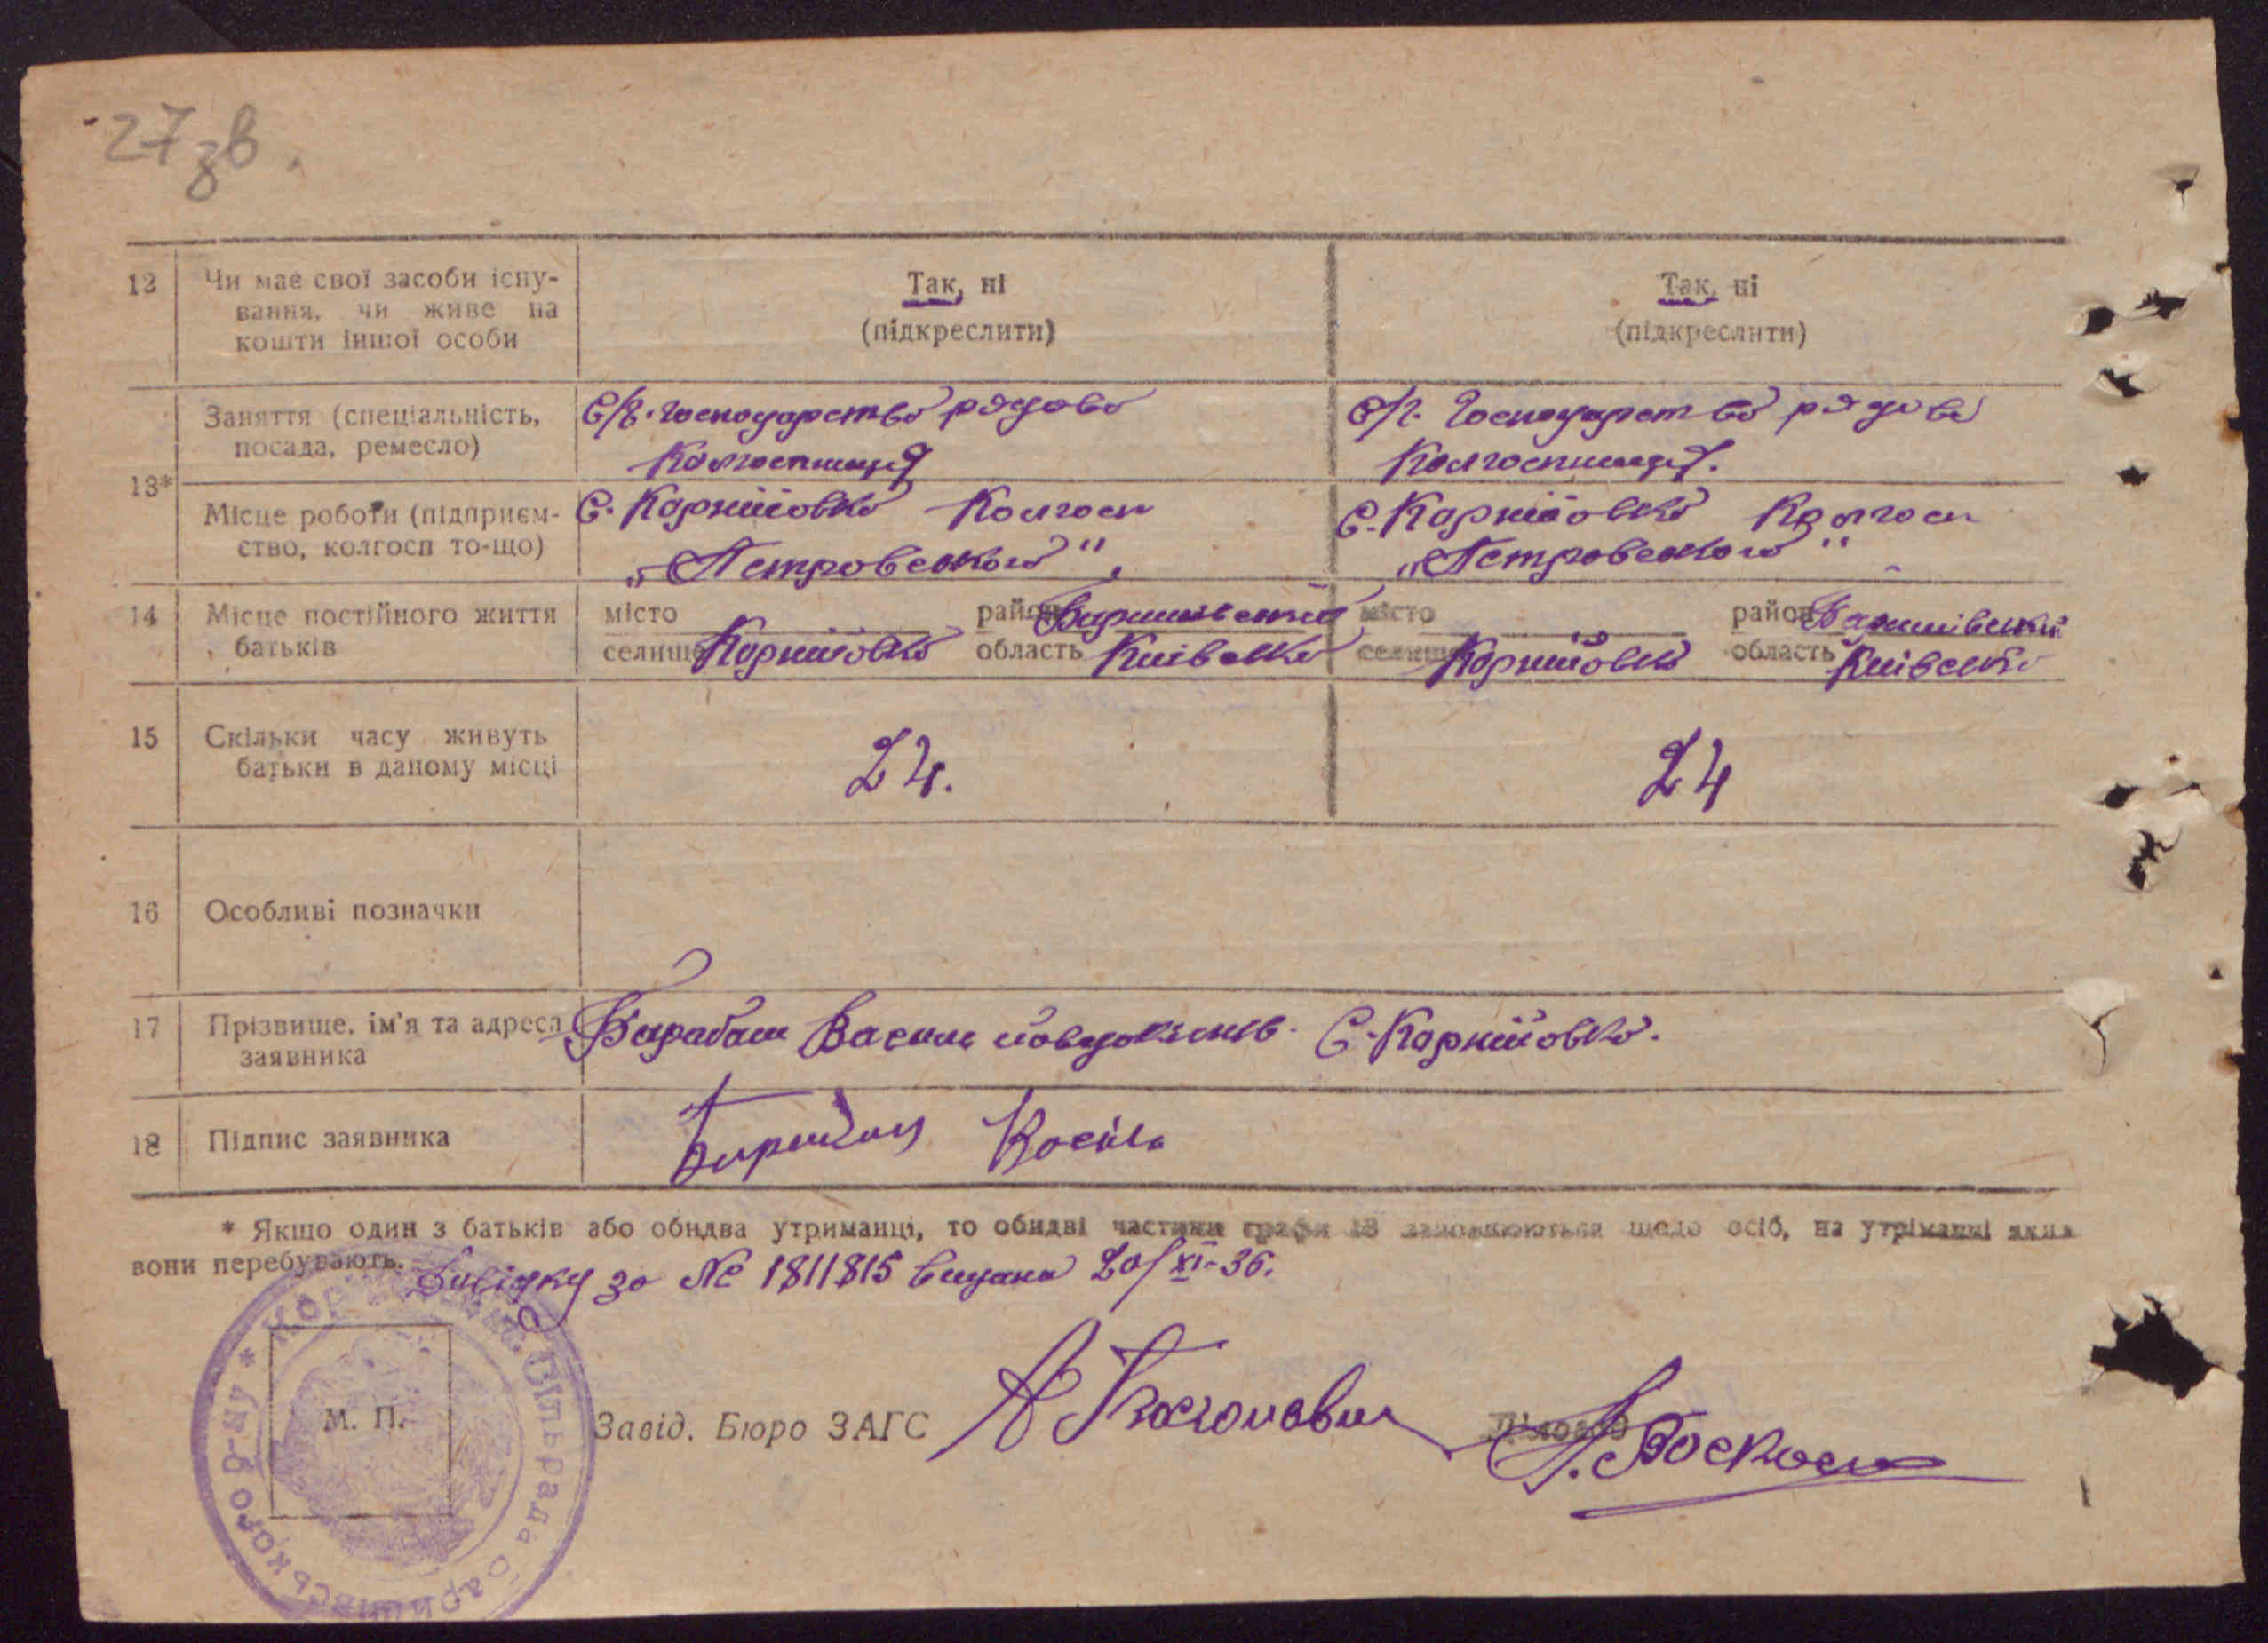 27 зв.
12 Чи має свої засоби існу-
вання, чи живе на
кошти іншої особи
Так, ні
(підкреслити)
Так, ні
(підкреслити)
13*
Заняття (спеціальність,
посада, ремесло)
С/г. господарство рядова
колгоспниця
С/г. господарство рядова
колгоспниця.
Місце роботи (підприєм-
ство, колгосп то-що)
С. Корнійовка Колгосп
„Петровского",
С. Корнійовка Колгосп
„Петровского"
14 Місце постійного життя
батьків
місто район Баришівский
селище Корнійовка область Київска
місто район Баришівский
селище Корнійовка область Київска
15 Скільки часу живуть
батьки в даному місці
24.
24
16 Особливі позначки
17 Прізвище, ім'я та адреса
заявника
Барабаш Василь С. Корнійовка.
18 Підпис заявника
Барабаш
* Якщо один з батьків або обидва утриманці, то обидві частини графи 13 заповнюються щодо осіб, на утріманні яких
вони перебувають.
Довідку за № 1811815 видана 20/XI-36.
М. П.
Завід. Бюро ЗАГС
Діловод
Сільрада Баришівського р-ну *